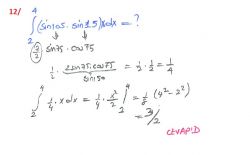 12/ ∫₂⁴ (sin105 . sin15) x dx = ?
2/2 sin75 . cos75
1/2 . 2sin75.cos75 = 1/2 . 1/2 = 1/4
sin150
∫₂⁴ 1/4 . x dx = 1/4 . x²/2 |₂⁴ = 1/8 (4² - 2²)
= 3/2
CEVAP:D